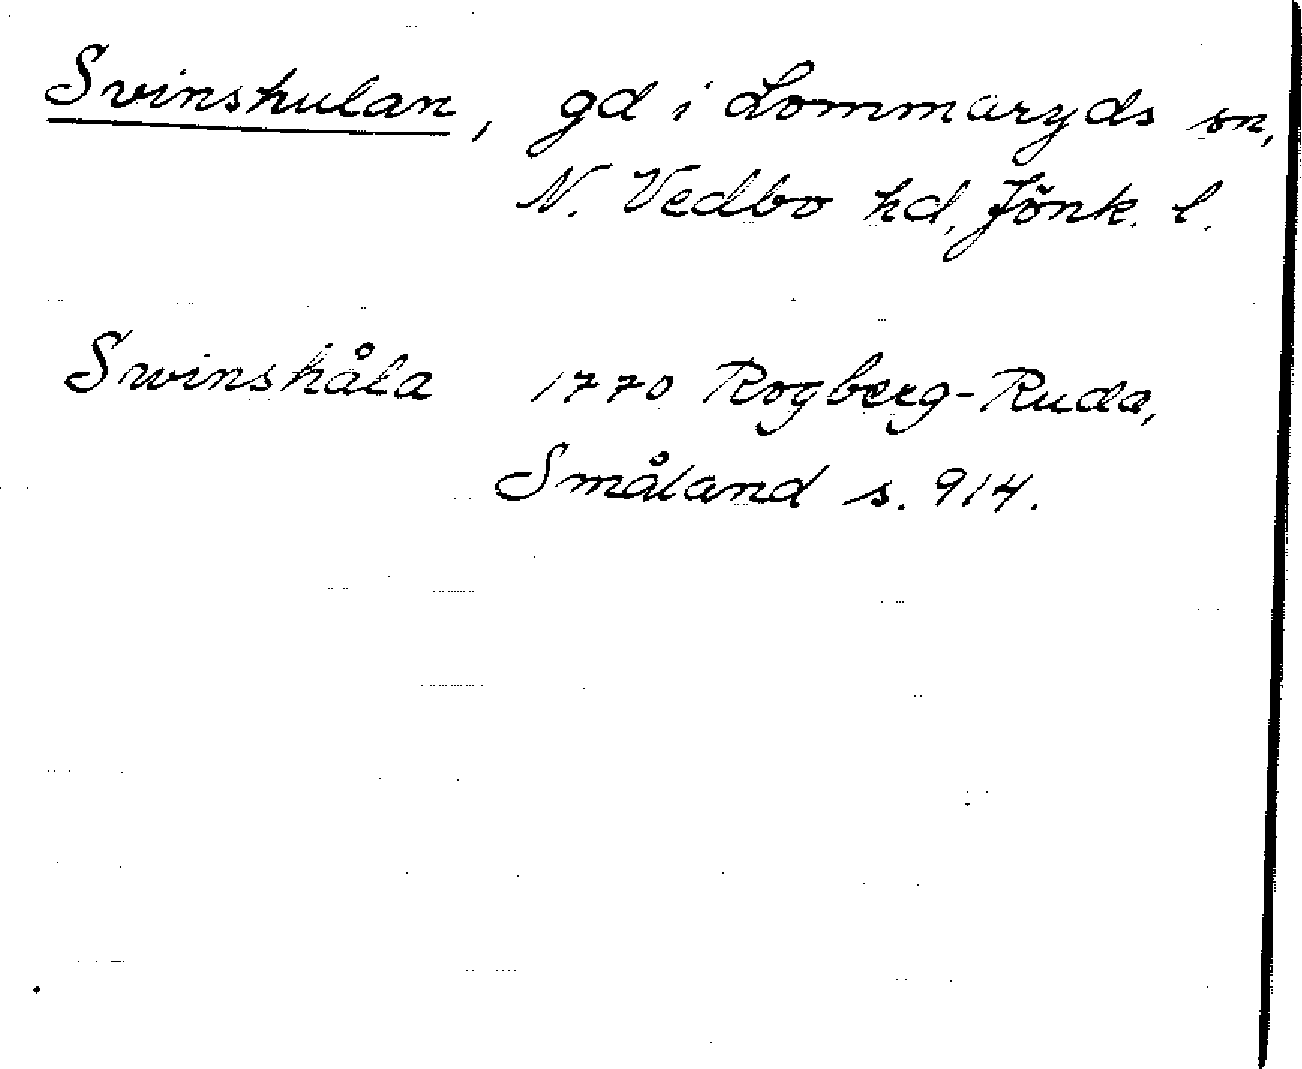 Svinshulan, gd i Lommaryds sn,
N. Vedbo hd, Jönk. l.
Swinshåla 1770 Rogberg-Ruda,
Småland s. 914.